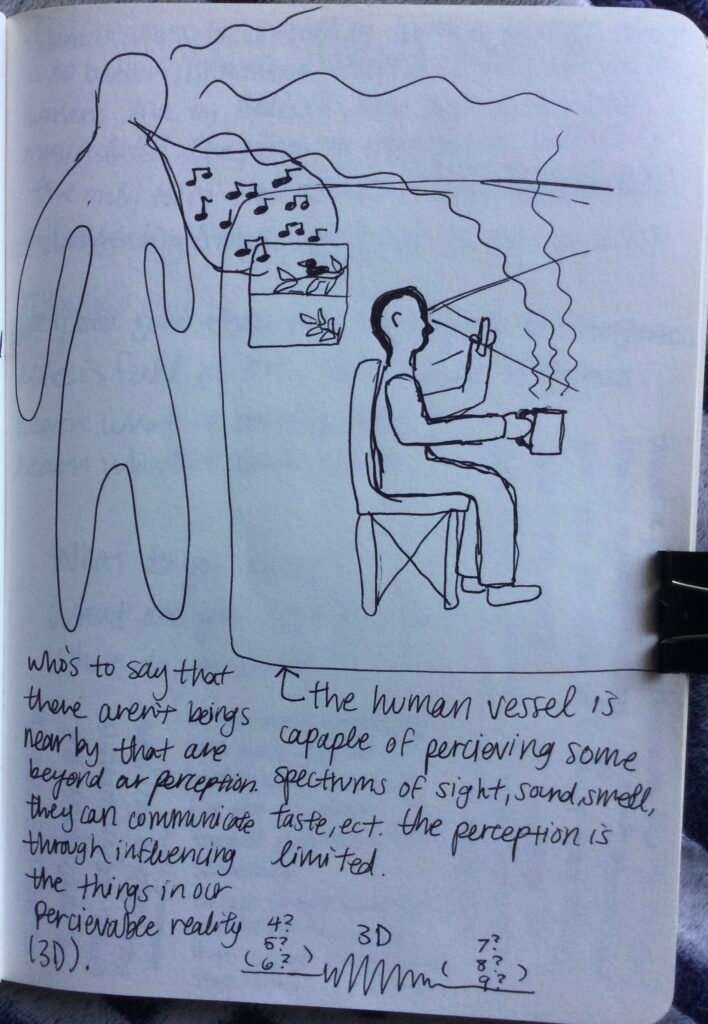 who's to say that
there aren't beings
nearby that are
beyond our perception.
they can communicate
through influencing
the things in our
percievable reality
(3D).
the human vessel is
capaple of percieving some
spectrums of sight, sound, smell,
taste, ect. the perception is
limited.
4?
5?
(6?)
3D
7?
8?
(9?)